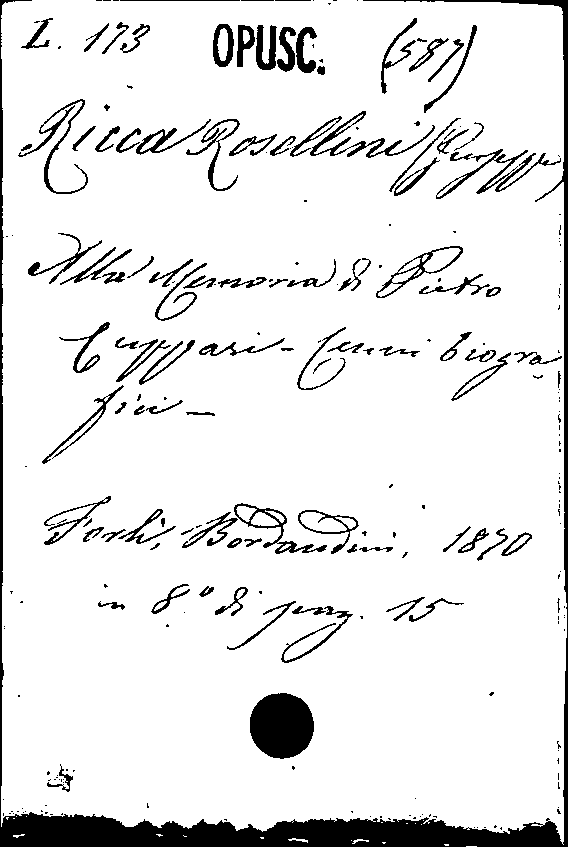 L. 173 OPUSC. (587)
Ricca Rosellini (Giuseppe)
Alla Memoria di Pietro
Cuppari - Cenni biogra
fici -
Forlì, Bordandini, 1870
in 8° di pag. 15